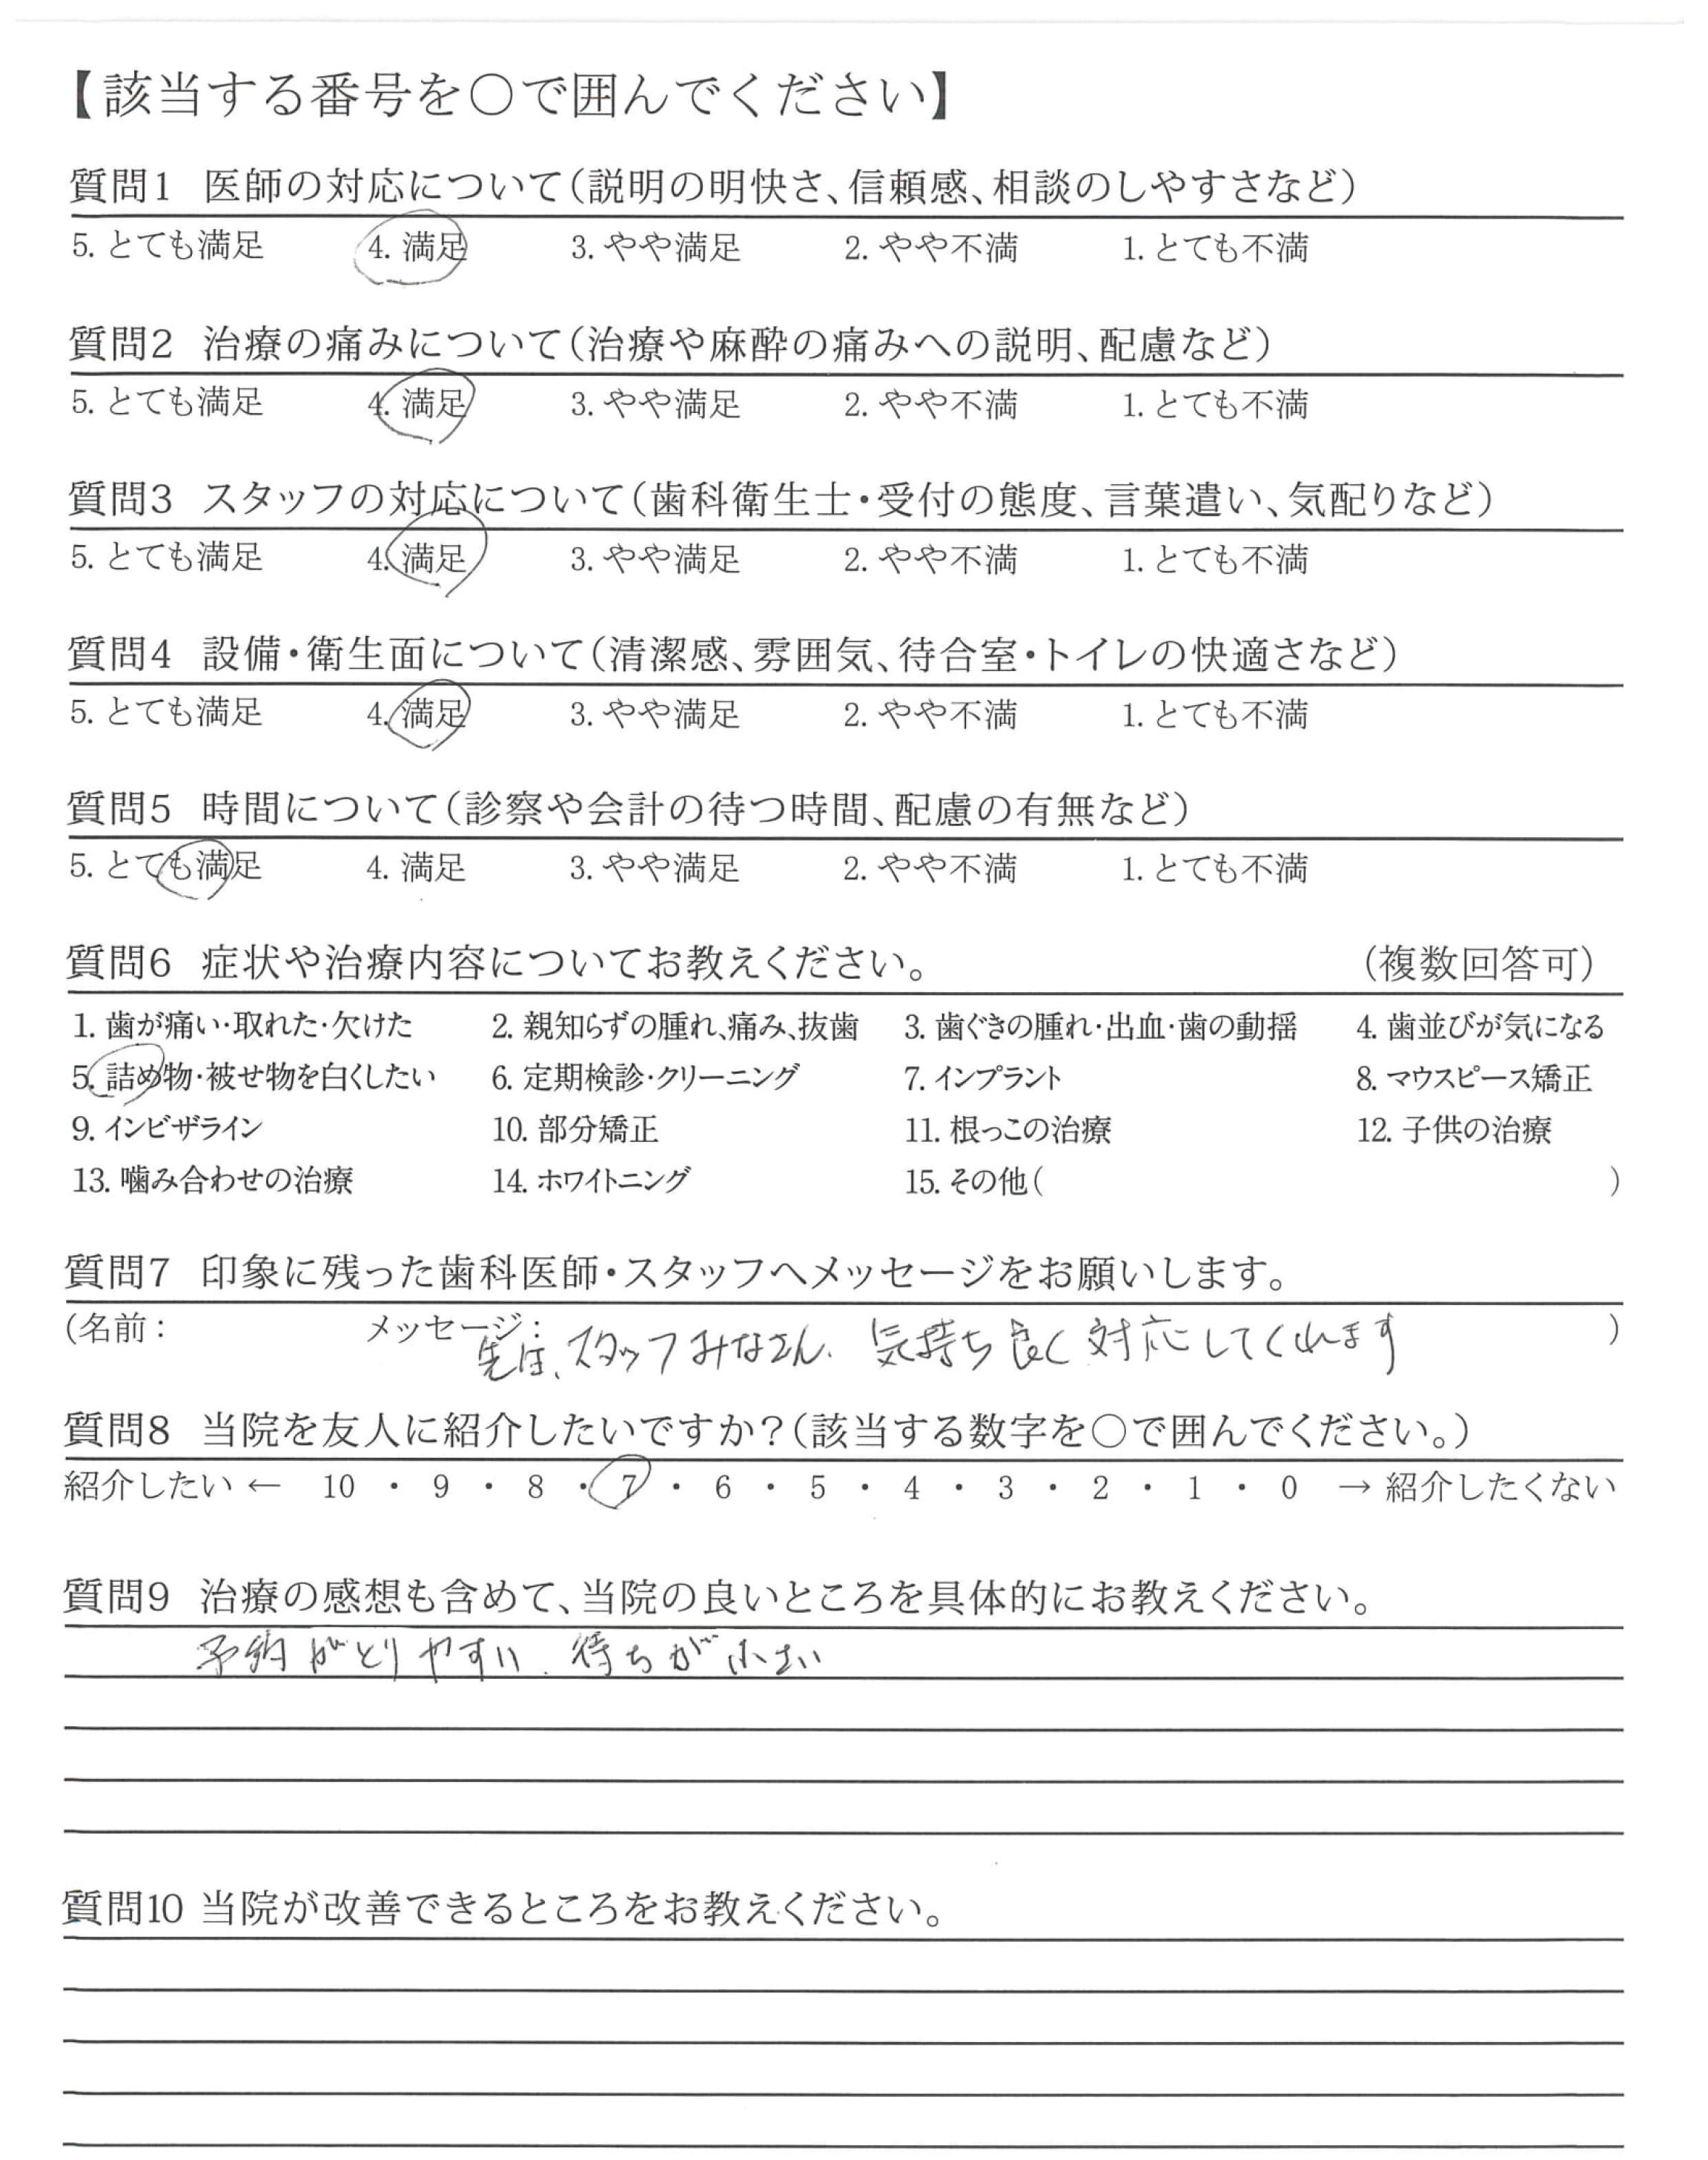 【該当する番号を○で囲んでください】
質問1 医師の対応について(説明の明快さ、信頼感、相談のしやすさなど)
5. とても満足 4. 満足 3. やや満足 2. やや不満 1. とても不満
質問2 治療の痛みについて(治療や麻酔の痛みへの説明、配慮など)
5. とても満足 4. 満足 3. やや満足 2. やや不満 1. とても不満
質問3 スタッフの対応について(歯科衛生士・受付の態度、言葉遣い、気配りなど)
5. とても満足 4. 満足 3. やや満足 2. やや不満 1. とても不満
質問4 設備・衛生面について(清潔感、雰囲気、待合室・トイレの快適さなど)
5. とても満足 4. 満足 3. やや満足 2. やや不満 1. とても不満
質問5 時間について(診察や会計の待つ時間、配慮の有無など)
5. とても満足 4. 満足 3. やや満足 2. やや不満 1. とても不満
質問6 症状や治療内容についてお教えください。 (複数回答可)
1. 歯が痛い・取れた・欠けた 2. 親知らずの腫れ、痛み、抜歯 3. 歯ぐきの腫れ・出血・歯の動揺 4. 歯並びが気になる
5. 詰め物・被せ物を白くしたい 6. 定期検診・クリーニング 7. インプラント 8. マウスピース矯正
9. インビザライン 10. 部分矯正 11. 根っこの治療 12. 子供の治療
13. 噛み合わせの治療 14. ホワイトニング 15. その他( )
質問7 印象に残った歯科医師・スタッフへメッセージをお願いします。
(名前: メッセージ: )
スタッフみなさん、気持ち良く対応してくれます
質問8 当院を友人に紹介したいですか?(該当する数字を○で囲んでください。)
紹介したい ← 10 ・ 9 ・ 8 ・ 7 ・ 6 ・ 5 ・ 4 ・ 3 ・ 2 ・ 1 ・ 0 → 紹介したくない
質問9 治療の感想も含めて、当院の良いところを具体的にお教えください。
予約がとりやすい、待ちが小さい
質問10 当院が改善できるところをお教えください。